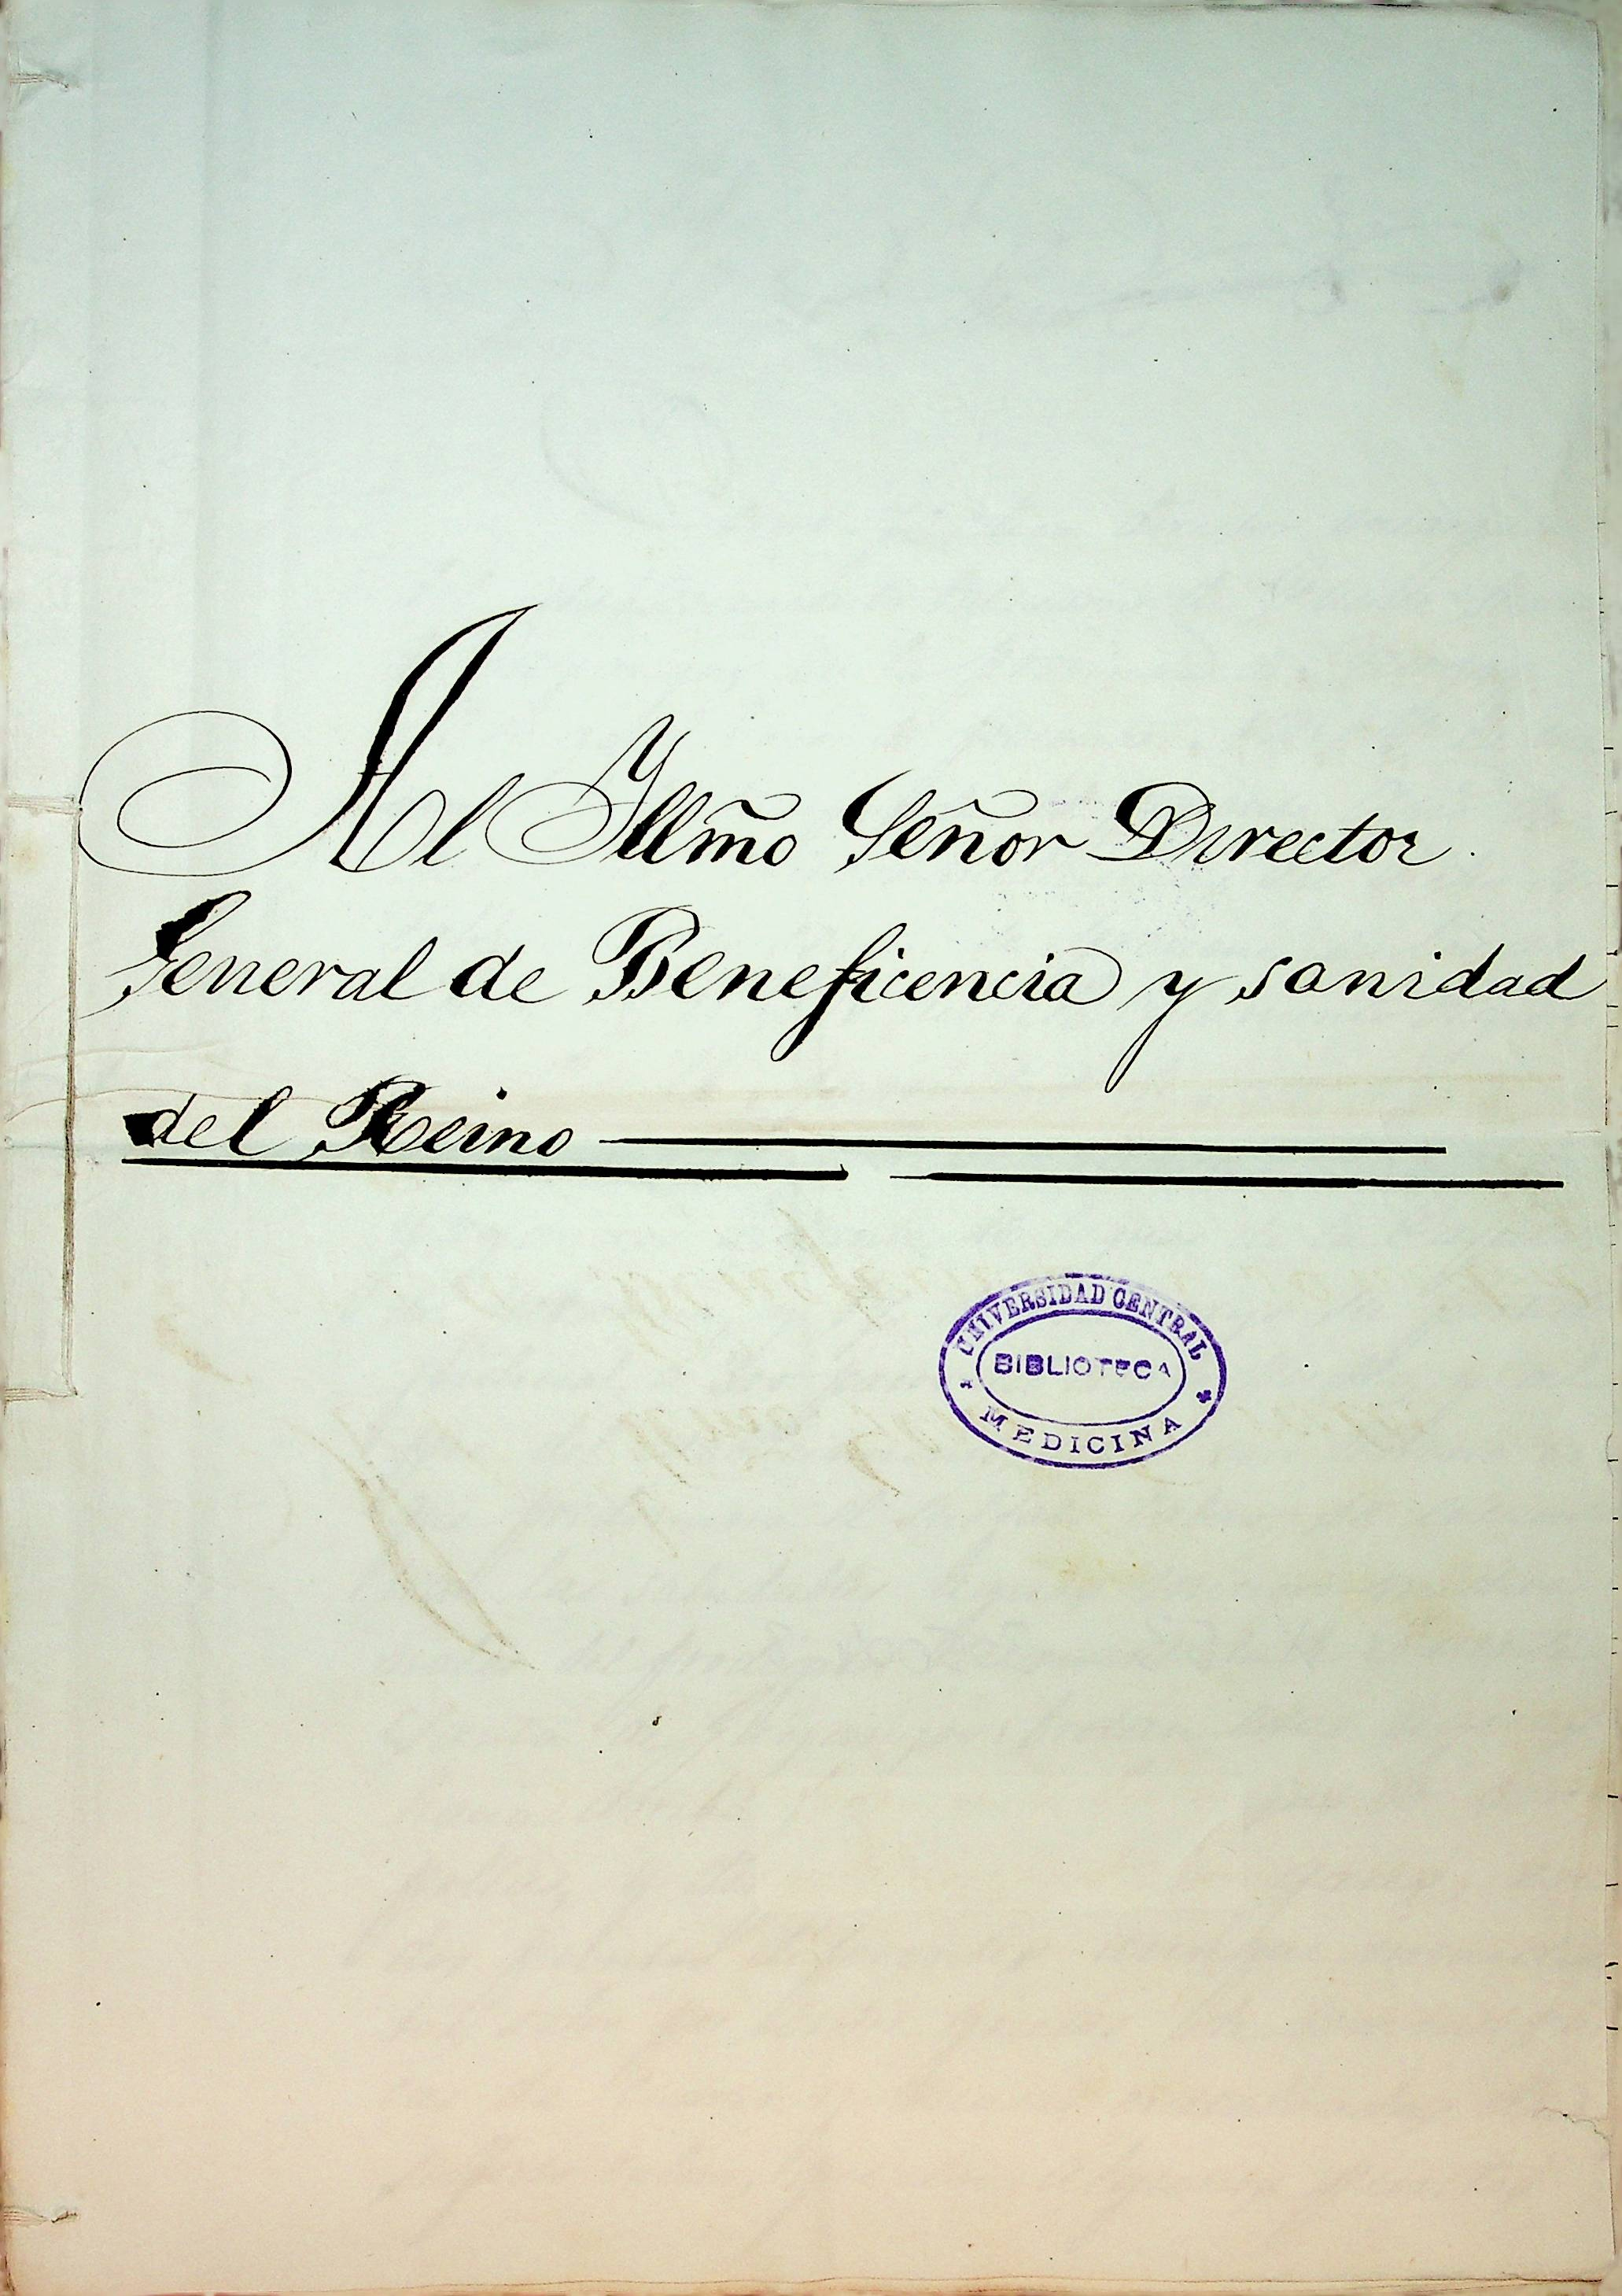 Al Yllm̃o Señor Director
General de Beneficencia y sanidad
del Reino
UNIVERSIDAD CENTRAL
BIBLIOTECA
MEDICINA